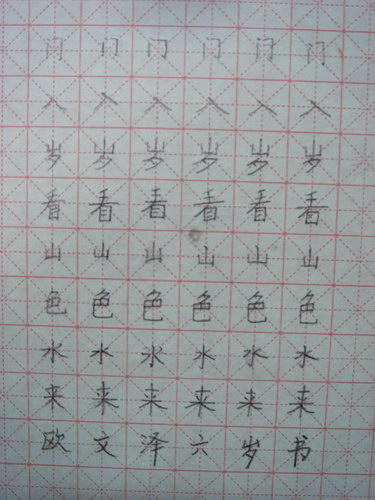 门门门门门门
入入入入入入
岁岁岁岁岁岁
看看看看看看
山山山山山山
色色色色色色
水水水水水水
来来来来来来
欧文泽六岁书